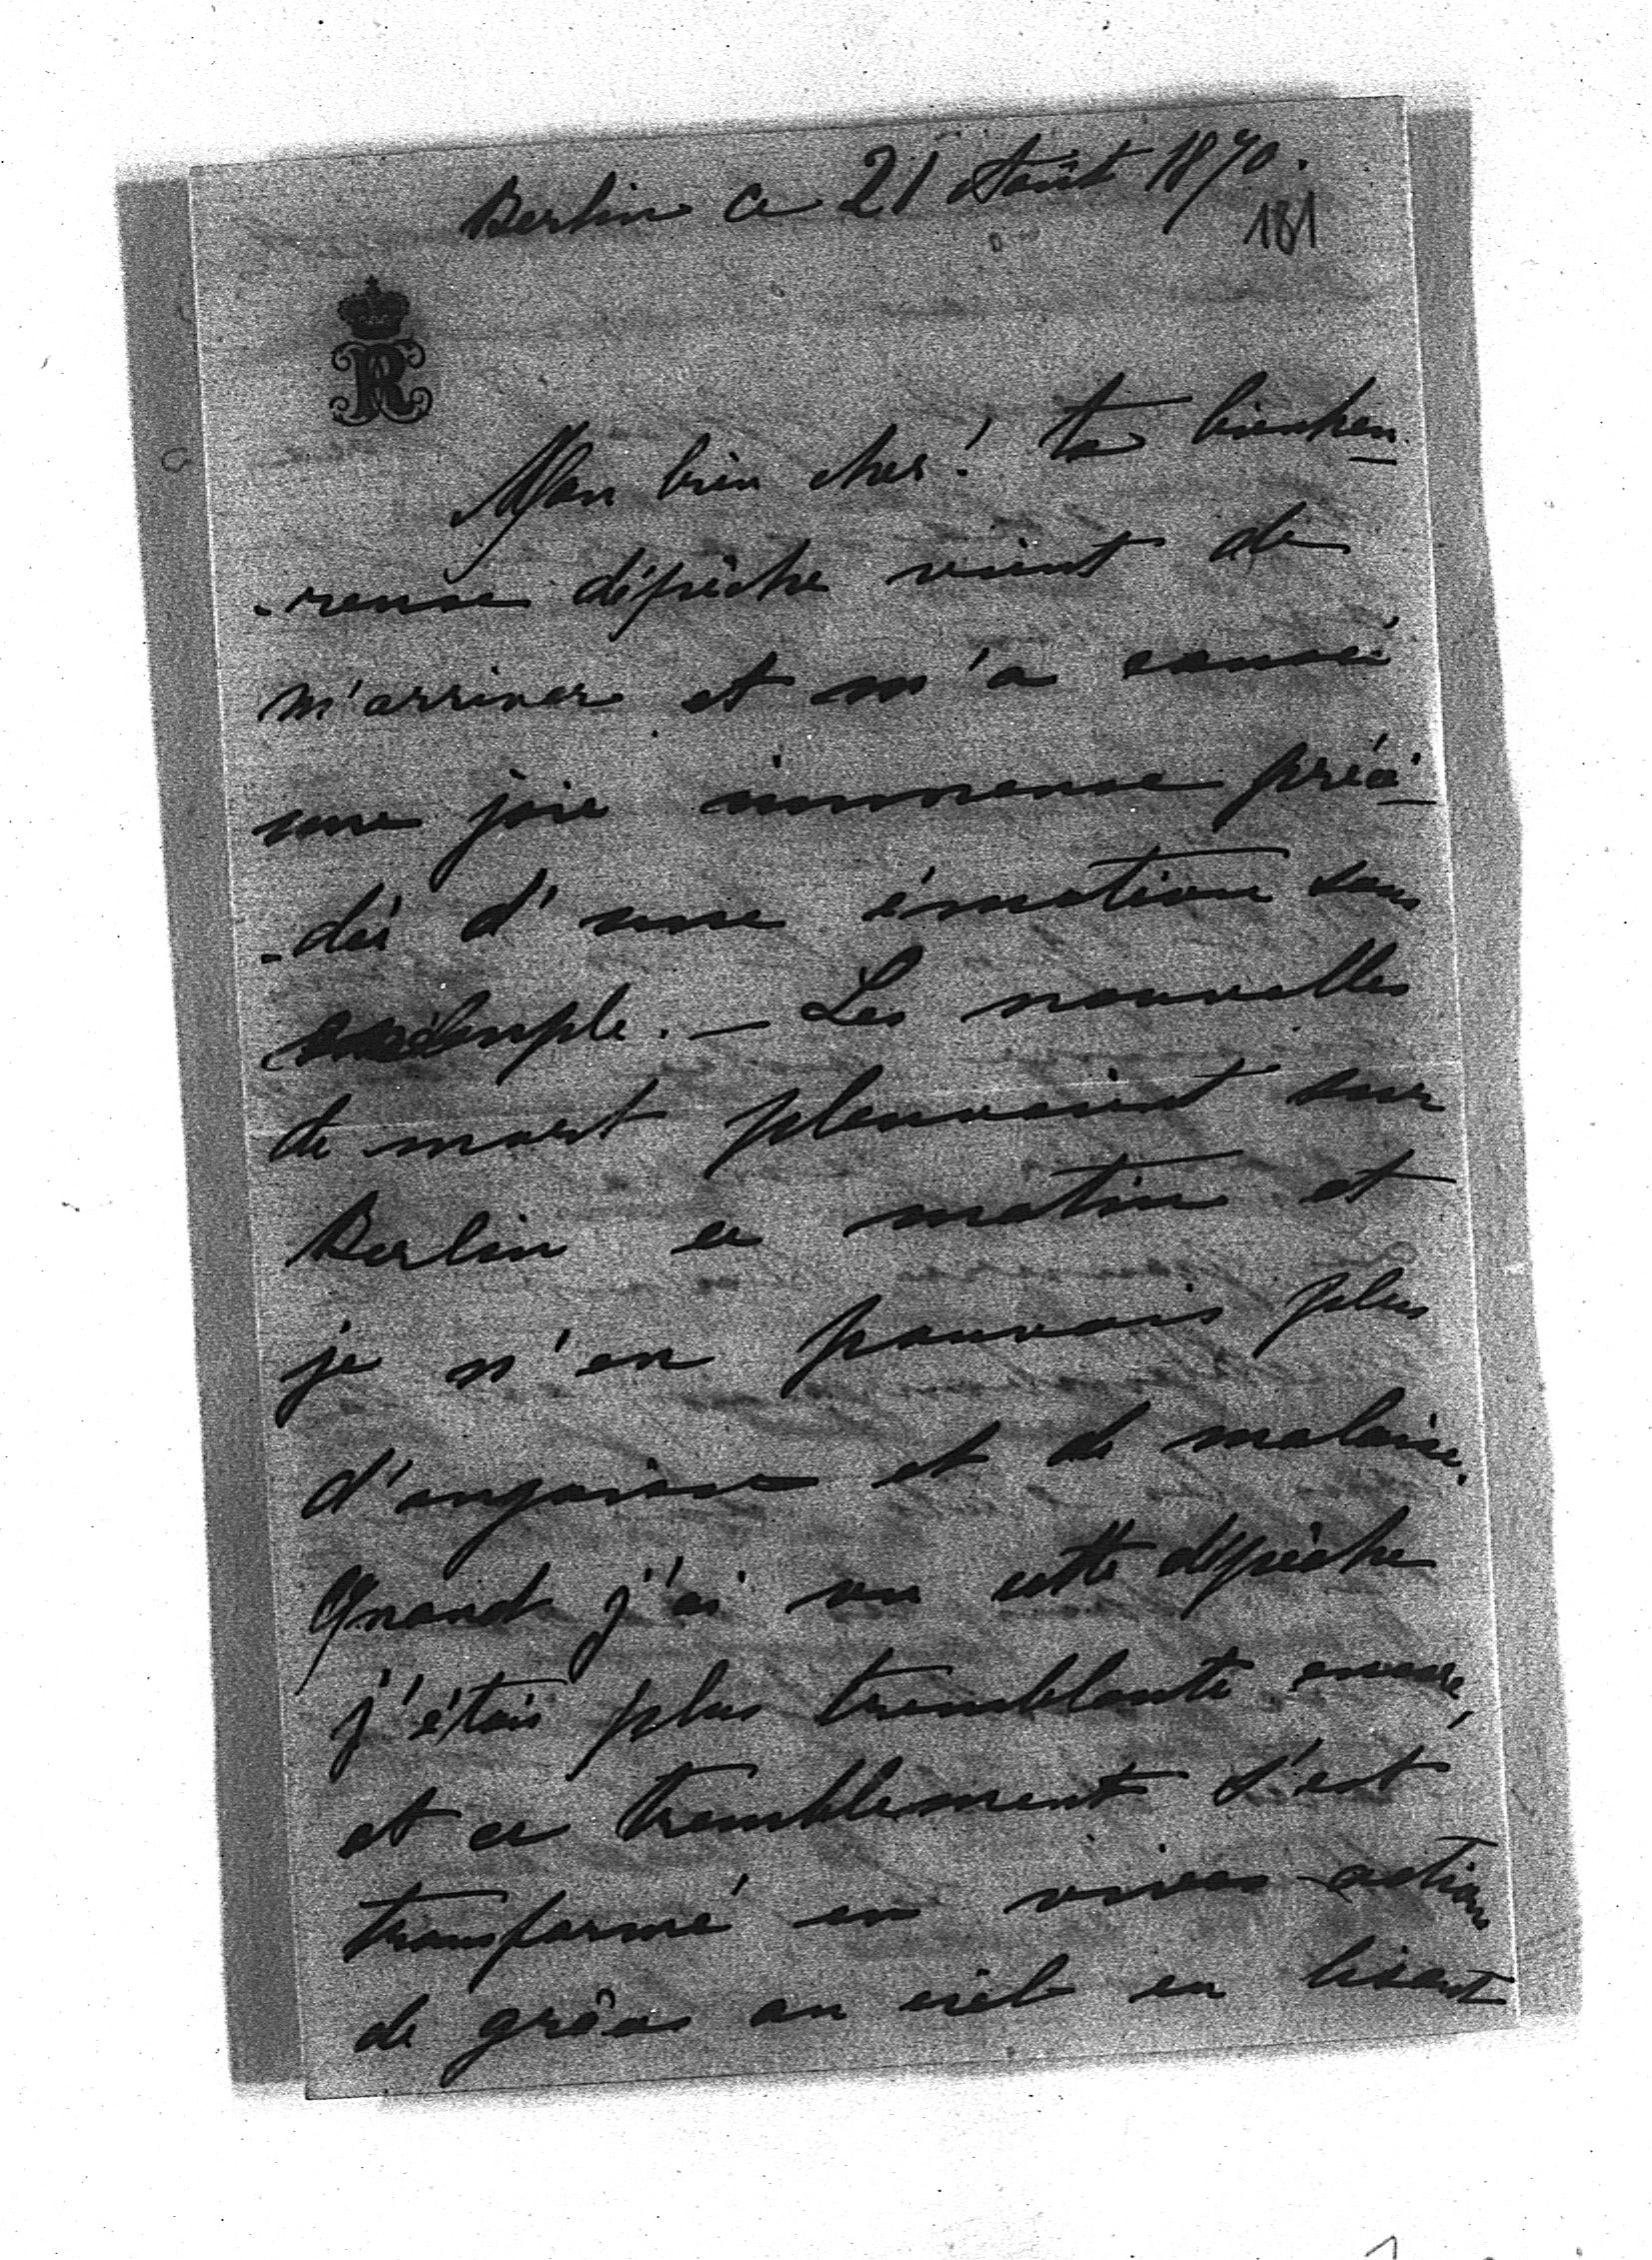 Berlin ce 21 Août 1870.
181
R
Mon bien cher! ta bienheu-
-reuse dépêche vient de
m'arriver et m'a causé
une joie immense précé-
-dée d'une émotion sans
exemple. – Les nouvelles
de mort pleuvaient sur
Berlin ce matin et
je n'en pouvais plus
d'angoisse et de malaise.
Quand j'ai vu cette dépêche
j'étais plus tremblante encore,
et ce tremblement s'est
transformé en vives actions
de grâces au ciel en lisant